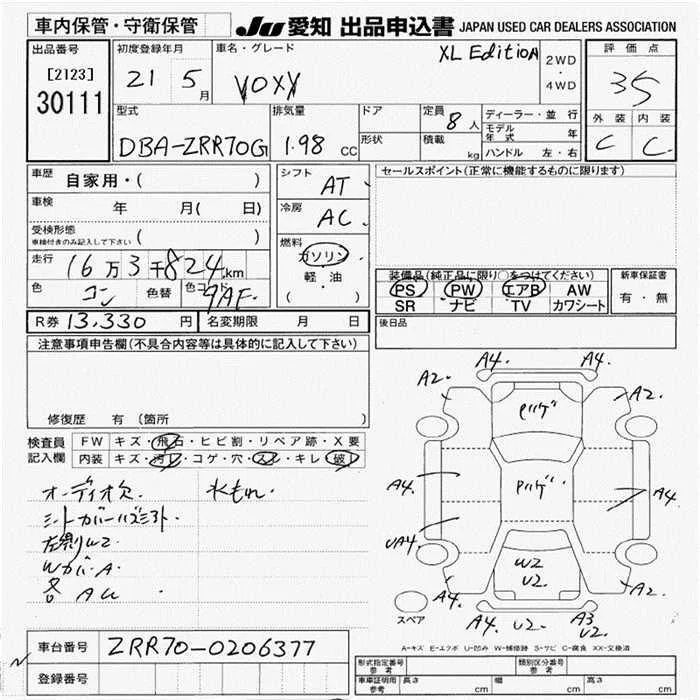 車内保管・守衛保管
JU 愛知 出品申込書 JAPAN USED CAR DEALERS ASSOCIATION
出品番号
[2123]
30111
初度登録年月
21 5月
車名・グレード
VOXY
XL Edition
2WD
・
4WD
評価点
35
外装 内装
C C
型式
DBA-ZRR70G
排気量
1.98 CC
ドア
形状
定員 8人
積載 kg
ディーラー・並行
モデル年式 年
ハンドル 左・右
車歴 自家用・( )
車検 年 月( 日)
受検形態
車検付きのみ記入して下さい ( )
走行 16万3千824km
色 コン 色替 色コード 9AF
シフト AT
冷房 AC
燃料
ガソリン
軽・油
( )
セールスポイント(正常に機能するものに限ります)
装備品(純正品に限り〇をつけてください)
PS PW エアB AW
SR ナビ TV カワシート
新車保証書
有・無
R券 13,330円 名変期限 月 日
後日品
注意事項申告欄(不具合内容等は具体的に記入して下さい)
修復歴 有(箇所 )
検査員 FW キズ・飛石・ヒビ割・リペア跡・X要
記入欄 内装 キズ・汚レ・コゲ・穴・スレ・キレ・破レ
オーディオ欠. 水もれ.
シートカバーハズミ外.
左側W2
WカバーA.
各AU
A4. A4.
A2. A2.
A4. A4.
UA4.
W2
U2.
A4. A4.
A4. U2. A3
U2.
スペア
A-キズ E-エクボ U-凹み W-補修跡 S-サビ C-腐食 XX-交換済
車台番号 ZRR70-0206377
登録番号
型式指定番号
参考
類別区分番号
参考
車庫証明用
参考
長さ cm 幅 cm 高さ cm